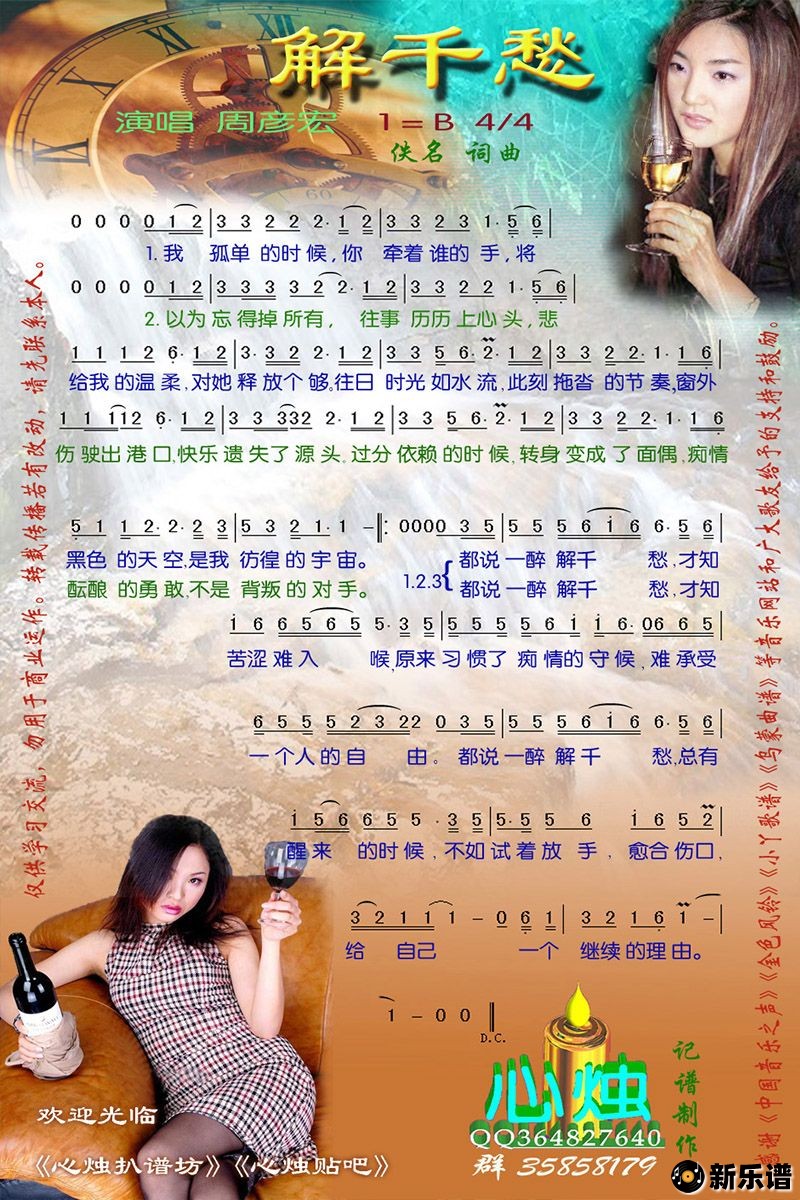 解千愁
演唱 周彦宏 1=B 4/4
佚名 词曲
0 0 0 0 1 2|3 3 2 2 2· 1 2|3 3 2 3 1· 5 6|
1.我 孤单 的时候,你 牵着谁的 手,将
0 0 0 0 1 2|3 3 3 3 2 2· 1 2|3 3 2 2 1· 5 6|
2.以为 忘 得掉 所有, 往事 历历 上心 头,悲
1 1 1 2 6· 1 2|3· 3 3 3 2 2· 1 2|3 3 5 6· 2· 1 2|3· 3 2 2· 1· 1 6|
给我 的温 柔,对她 释 放个 够.往日 时光 如水 流,此刻 拖沓 的节 奏,窗外
1 1 1112 6· 1 2|3 3 3332 2· 1 2|3 3 5 6· 2· 1 2|3 3 2 2· 1· 1 6|
伤 驶出 港 口,快乐 遗 失了 源 头.过分 依赖 的时 候,转身 变成 了 面偶,痴情
5 1 1 2· 2· 2 3|5 3 2· 1 1 -‖: 0000 3 5|5 5 5 6 i 6 6· 5 6|
黑色 的天 空,是我 彷徨 的宇宙。 都说 一醉 解千 愁,才知
酝酿 的勇 敢,不是 背叛 的对手。 1.2.3{ 都说 一醉 解千 愁,才知
i 6 6 5 6 5 5· 3 5|5 5 5 5 6 i i 6· 06 6 5|
苦涩 难入 喉,原来 习惯了 痴 情的 守候,难承受
6 5 5 5 2 3 2 2 2 0 3 5|5 5 5 6 i 6 6· 5 6|
一个人 的 自 由。 都说 一醉 解千 愁,总有
i 5 6 6 6 5 5 · 3 5|5· 5 5 5 6 i 6 5 2|
醒来 的时 候,不如 试着 放 手, 愈合 伤口,
3 2 1 1 1 - 0 6 1|3 2 1 6 1 -|
给 自己 一个 继续 的理 由。
1 - 0 0‖
D.C.
仅供学习交流，勿用于商业运作。转载传播若有改动，请先联系本人。
感谢《中国音乐之声》《金色风铃》《小丫歌谱》《乌蒙曲谱》等音乐网站和广大歌友给予的支持和鼓励。
心烛
记谱制作
QQ364827640
群 35858179
欢迎光临
《心烛扒谱坊》《心烛贴吧》
新乐谱